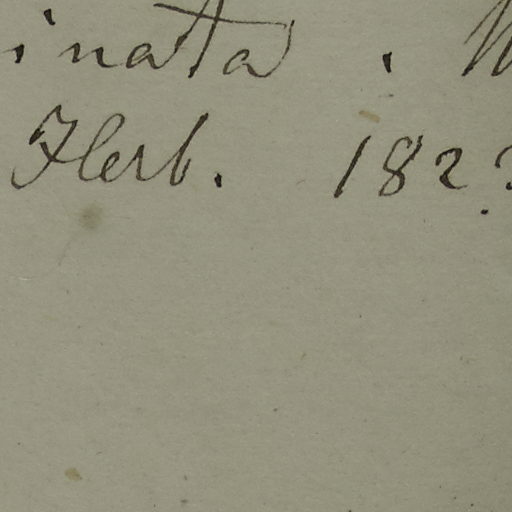 inata. W
Herb. 182?